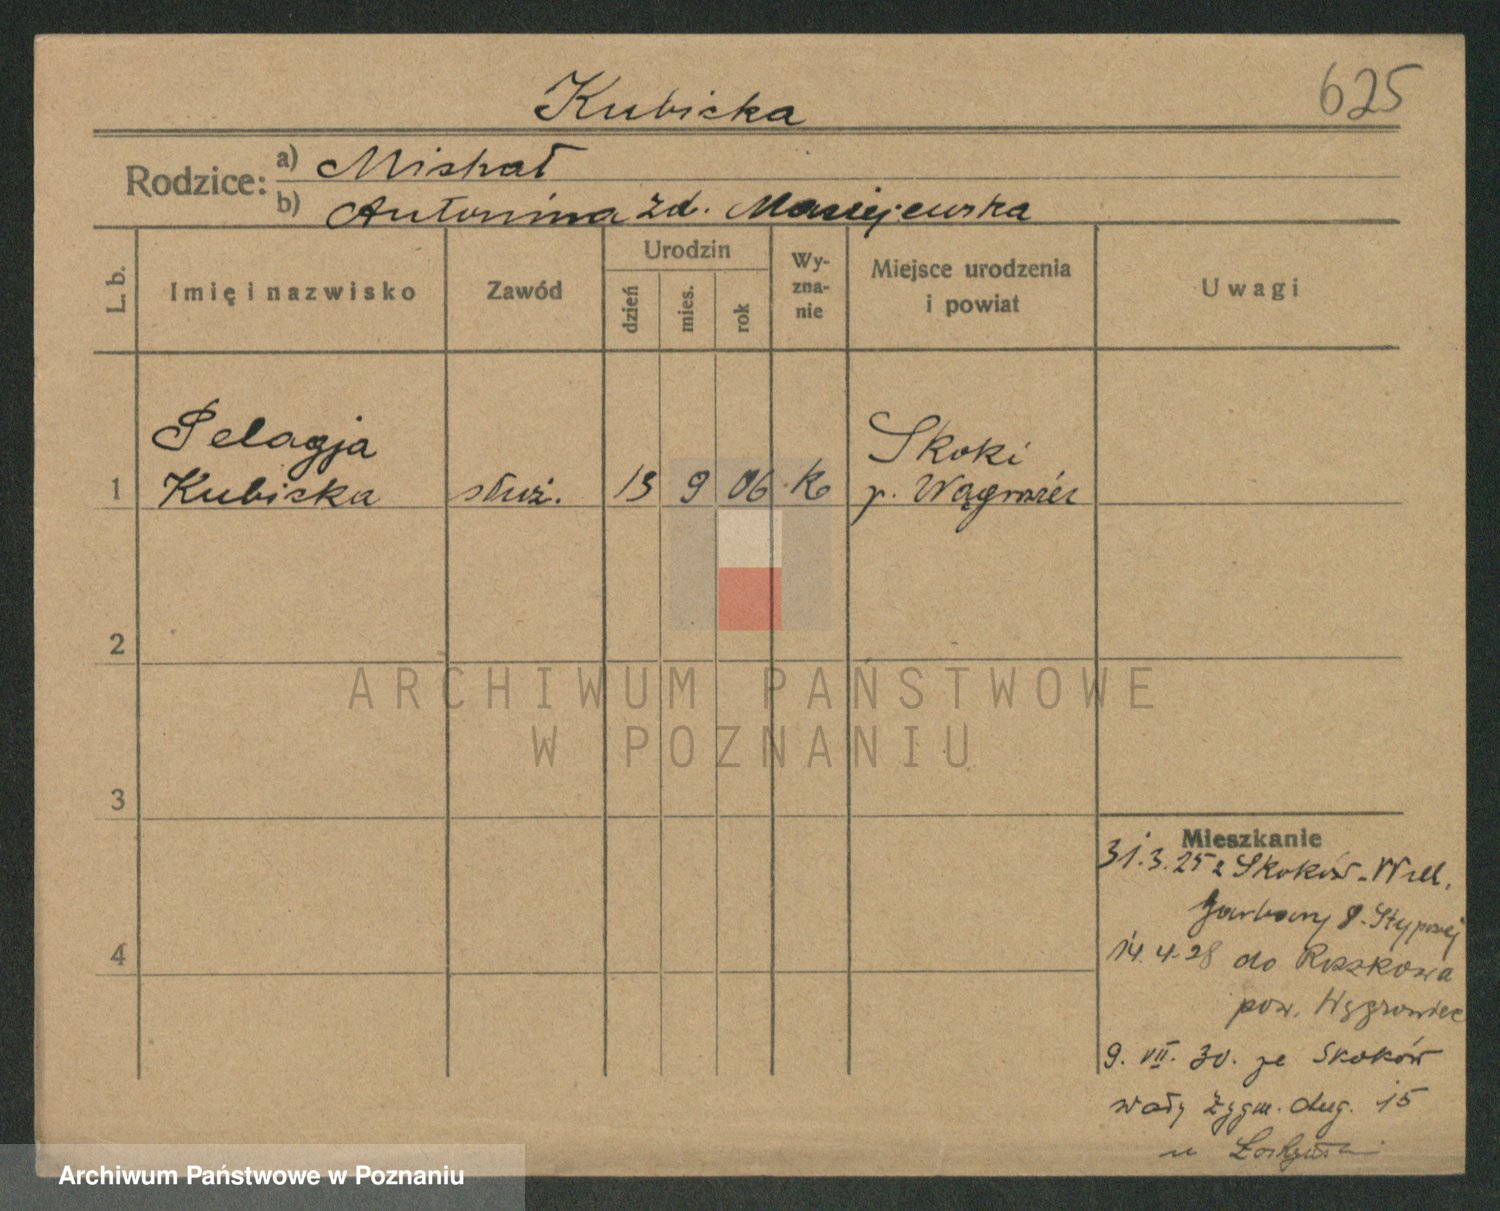 625
Kubicka
Rodzice: a) Michał
b) Antonina zd. Maciejewska
L. b.
Imię i nazwisko
Zawód
Urodzin
dzień
mies.
rok
Wy-
zna-
nie
Miejsce urodzenia
i powiat
Uwagi
Pelagja
Kubicka
1
służ.
13
9
06
k
Skoki
p. Wągrowiec
2
ARCHIWUM PAŃSTWOWE
W POZNANIU
3
4
Mieszkanie
31.3.25 z Skoków - Wlk.
Garbary 8.
14.4.28 do Roszkowa
pow. Wągrowiec
9. VII. 30. ze Skoków
wały Zygm. Aug. 15
u
Archiwum Państwowe w Poznaniu